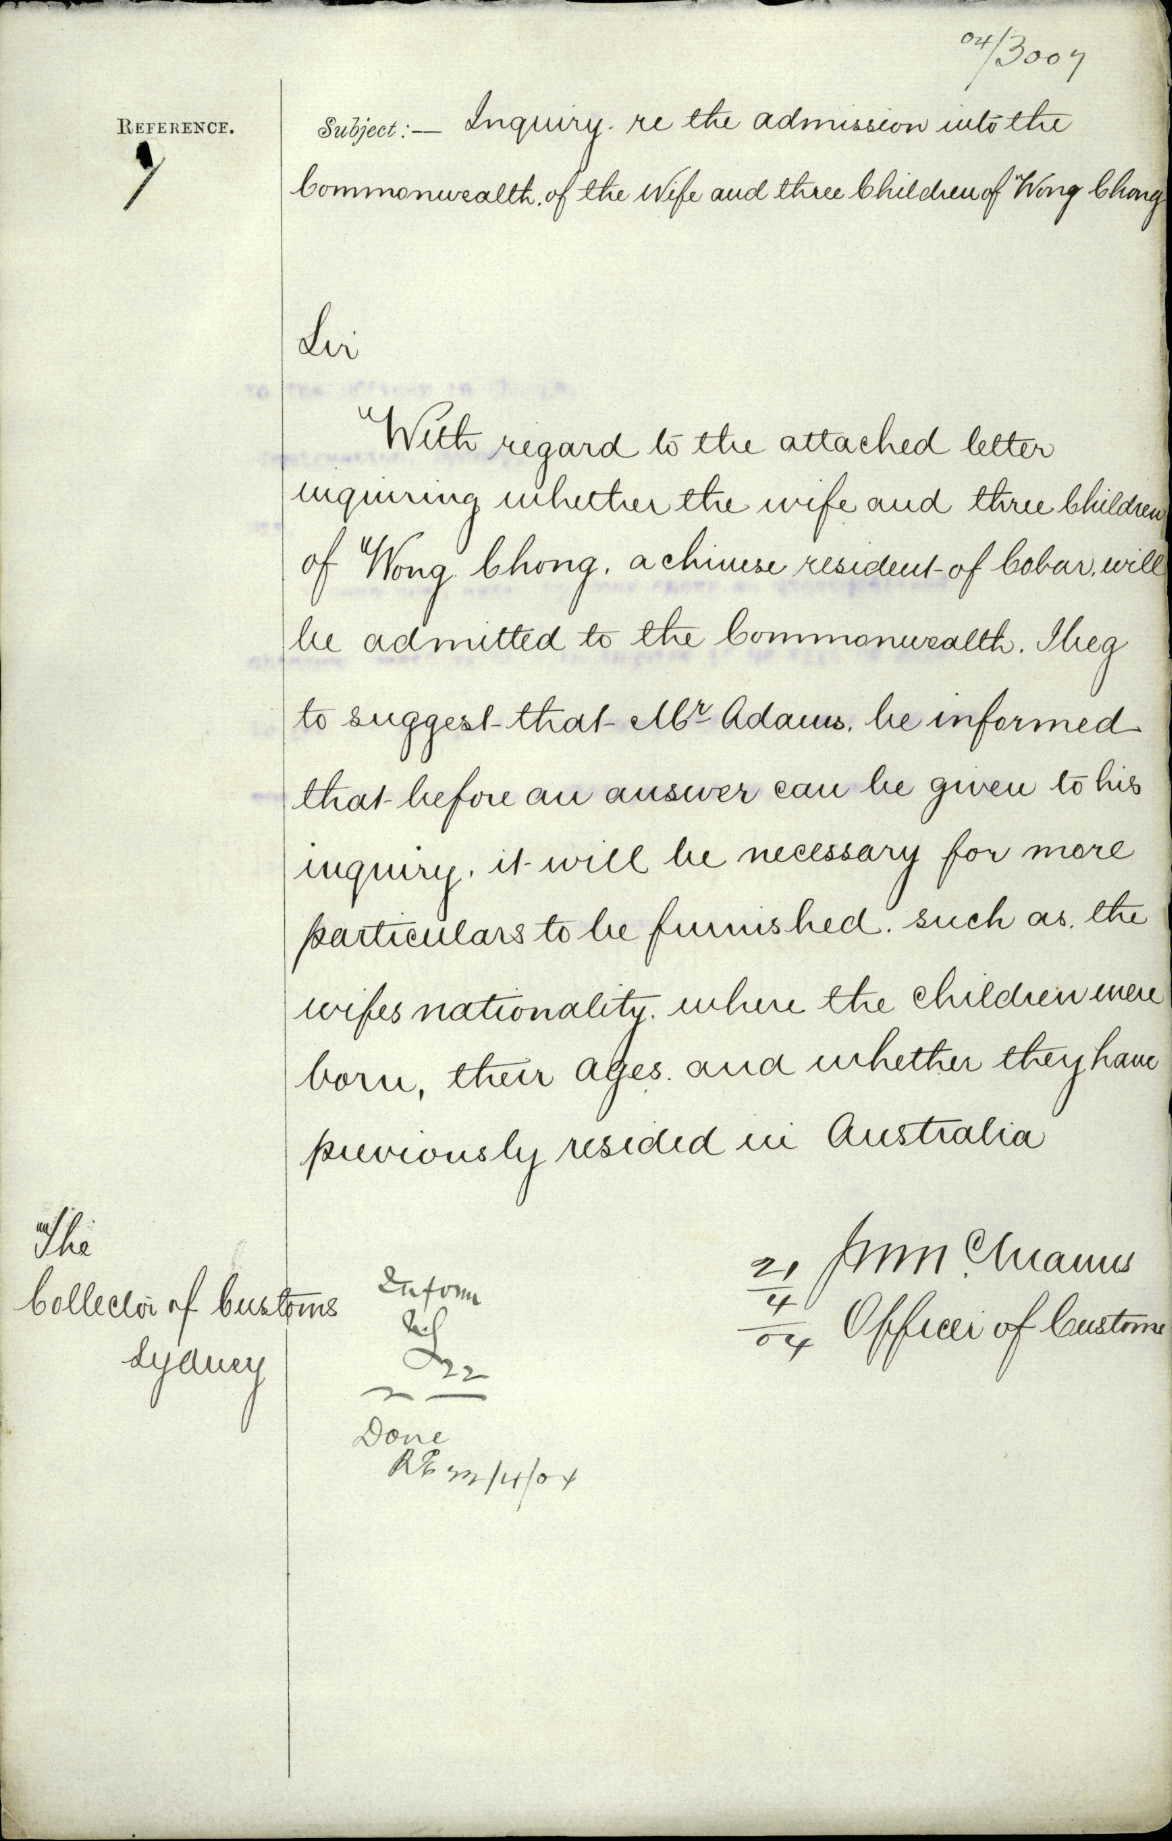 04/3007
REFERENCE.
Subject:— Inquiry. re the admission into the
Commonwealth. of the Wife and three Children of Wong Chong
Sir
With regard to the attached letter
inquiring whether the wife and three Children
of Wong Chong. a chinese resident of Cobar. will
be admitted to the Commonwealth. I beg
to suggest that Mr Adams. be informed
that before an answer can be given to his
inquiry. it will be necessary for more
particulars to be furnished. such as. the
wifes nationality. where the children were
born, their ages. and whether they have
previously resided in Australia
The
Collector of Customs
Sydney
21/4/04
Officer of Customs
Inform
22
Done
22/4/04